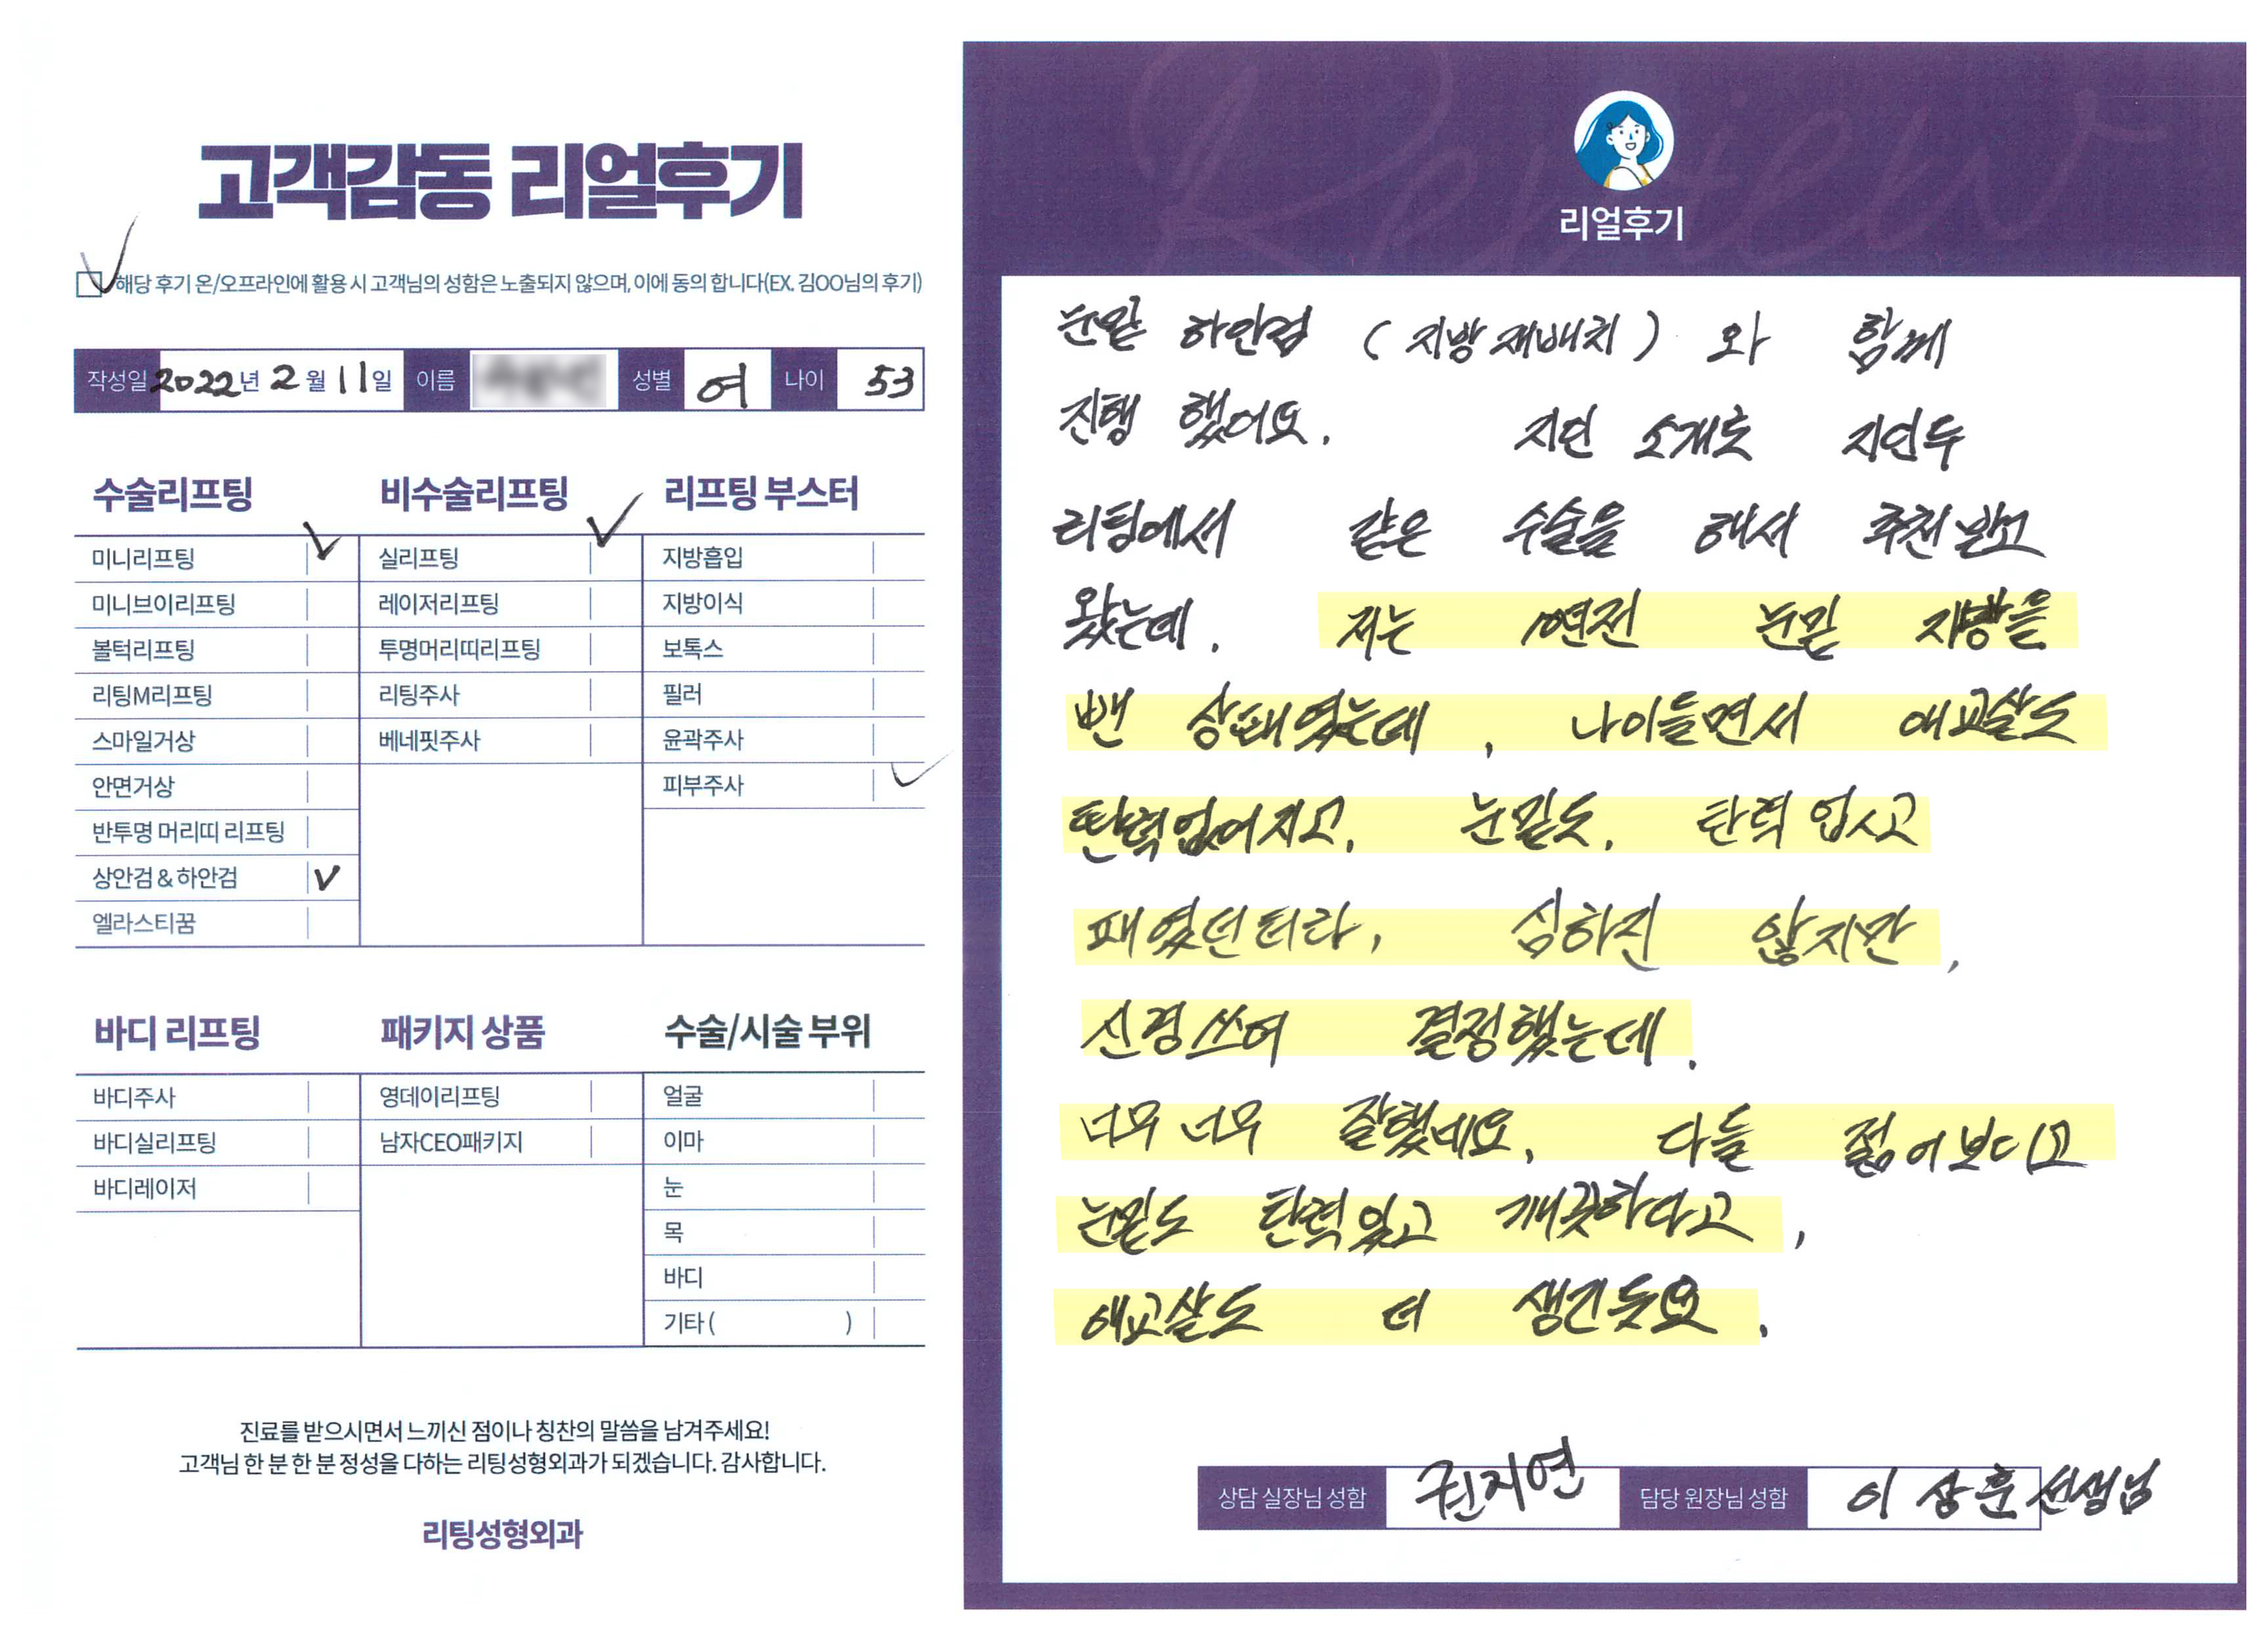 고객감동 리얼후기
해당 후기 온/오프라인에 활용 시 고객님의 성함은 노출되지 않으며, 이에 동의 합니다(EX. 김OO님의 후기)
작성일 2022년 2월 11일 이름 성별 여 나이 53
수술리프팅
미니리프팅
미니브이리프팅
볼턱리프팅
리팅M리프팅
스마일거상
안면거상
반투명 머리띠 리프팅
상안검 & 하안검
엘라스티꿈
비수술리프팅
실리프팅
레이저리프팅
투명머리띠리프팅
리팅주사
베네핏주사
리프팅 부스터
지방흡입
지방이식
보톡스
필러
윤곽주사
피부주사
바디 리프팅
바디주사
바디실리프팅
바디레이저
패키지 상품
영데이리프팅
남자CEO패키지
수술/시술 부위
얼굴
이마
눈
목
바디
기타 ( )
진료를 받으시면서 느끼신 점이나 칭찬의 말씀을 남겨주세요!
고객님 한 분 한 분 정성을 다하는 리팅성형외과가 되겠습니다. 감사합니다.
리팅성형외과
Review
리얼후기
눈밑 하안검 (지방재배치) 와 함께
진행 했어요. 지인 소개로 지인두
리팅에서 같은 수술을 해서 추천받고
왔는데. 저는 10년전 눈밑 지방을
뺀 상태였는데, 나이들면서 애교살도
탄력없어지고, 눈밑도, 탄력 업시고
패였던터라, 심하진 않지만,
신경쓰여 결정했는데.
너무 너무 잘했네요, 다들 젊어보인다고
눈밑도 탄력있고 깨끗하다고,
애교살도 더 생긴듯요.
상담 실장님 성함 권지연 담당 원장님 성함 이상훈 선생님